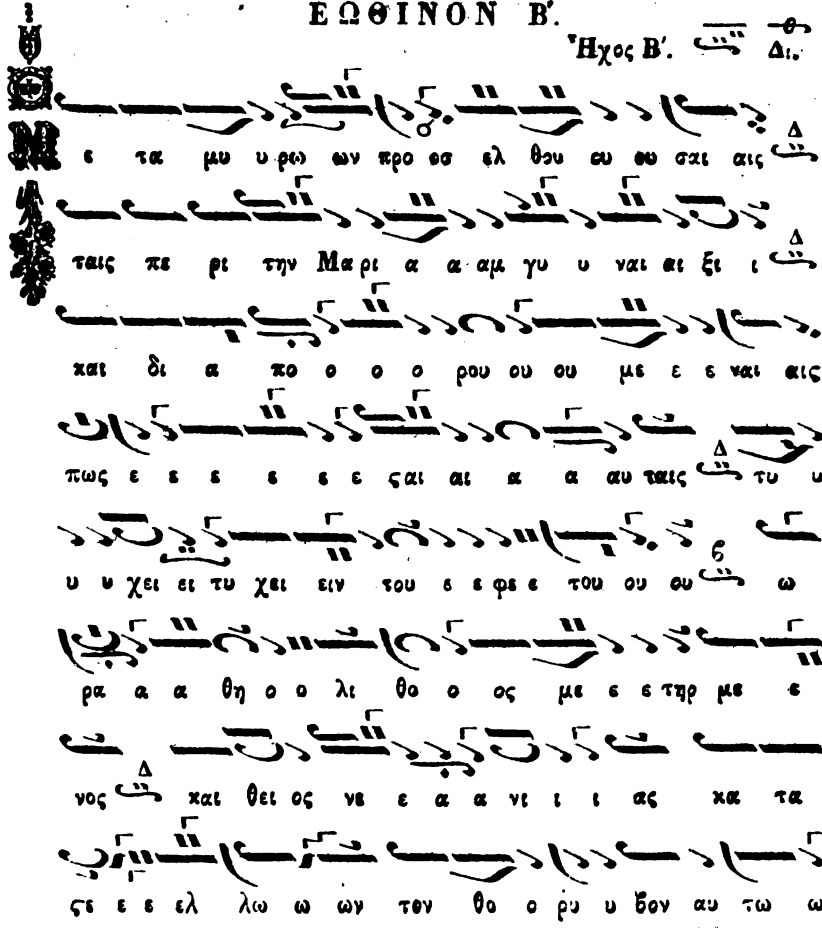 ΕΩΘΙΝΟΝ Β΄.
Ἦχος Β΄. Δι.
Μ ε τα μυ υ ρω ων προ οσ ελ θου ου ου σαι αις Δ
ταις πε ρι την Μα ρι α α αμ γυ υ ναι αι ξι ι Δ
και δι α πο ο ο ο ρου ου ου με ε ε ναι αις
πως ε ε ε ε ε ε ςαι αι α α αυ ταις Δ τυ υ
υ υ χει ει τυ χει ειν του ε ε φε ε του ου ου ϐ ω
ρα α α θη ο ο λι θο ο ος με ε ε τηρ με ε
νος Δ και θει ος νε ε α α νι ι ι ας κα τα
ςε ε ε ελ λω ω ων τον θο ο ρυ υ βον αυ τω ω